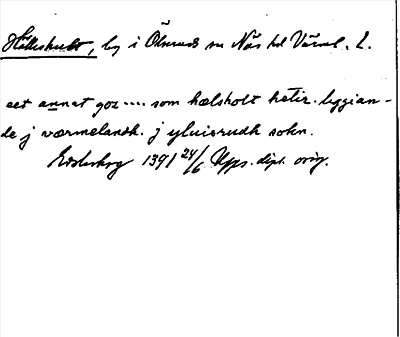 Hällesholt, by i Ölmred sn Näs hd Värml. L.
eet annat goz .... som hælsholt hetir. liggian-
de j værmelandh. j yluisrudh sokn.
1391 24/6 Ups. dipl. orig.